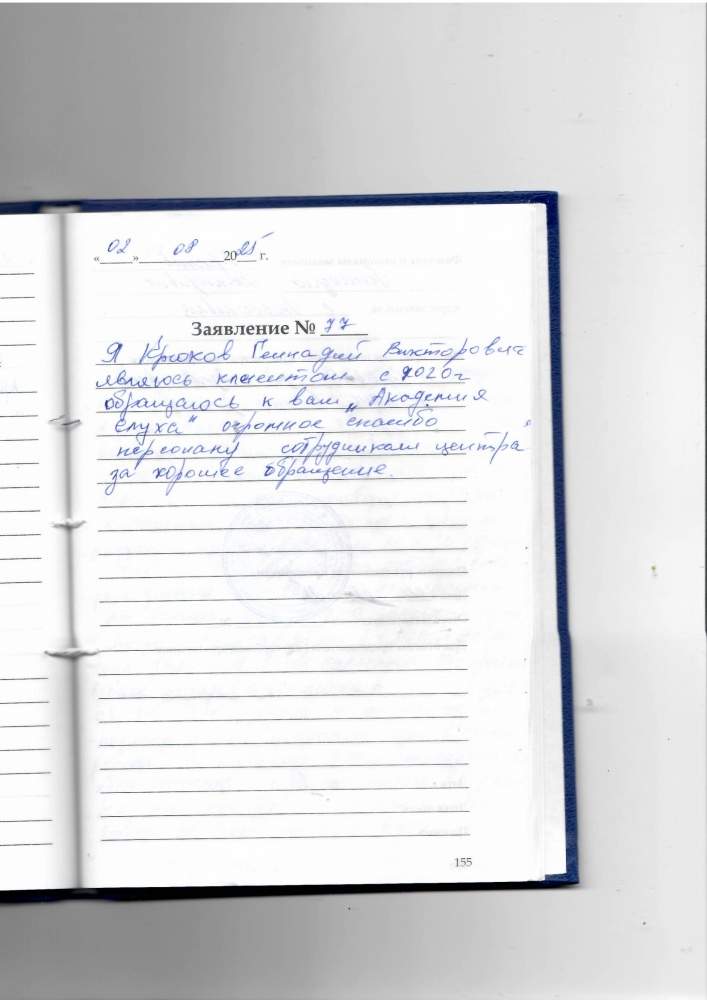 «02» 08 2025 г.
Заявление № 77
Я Крюков Геннадий Викторович
являюсь клиентом с 2020 г
обращаюсь к вам "Академия
слуха" огромное спасибо
персоналу сотрудникам центра
за хорошее обращение.
155